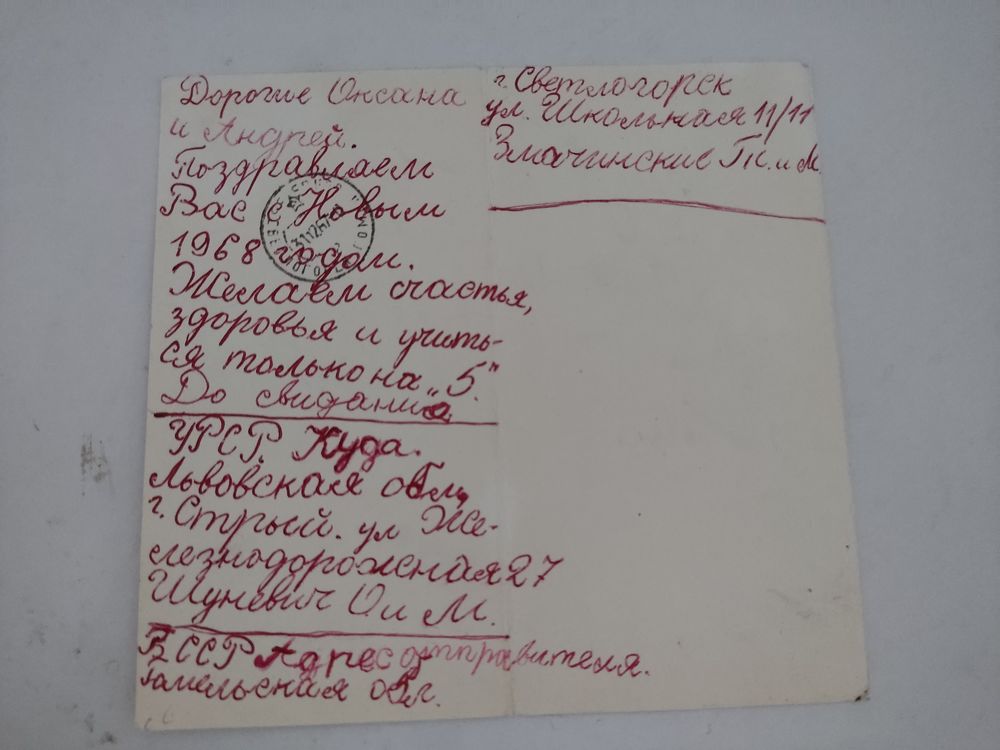 Дорогие Оксана
и Андрей.
Поздравляем
Вас с Новым
1968 годом.
Желаем счастья,
здоровья и учить-
ся только на „5."
До свидания
УРСР. Куда.
Львовская обл,
г. Стрый. ул Же-
лезнодорожная 27
Шуневич О и М.
БССР Адрес отправителя.
Гомельская обл.
г. Светлогорск
ул. Школьная 11/11
Змачинские Гк. и М.
311267